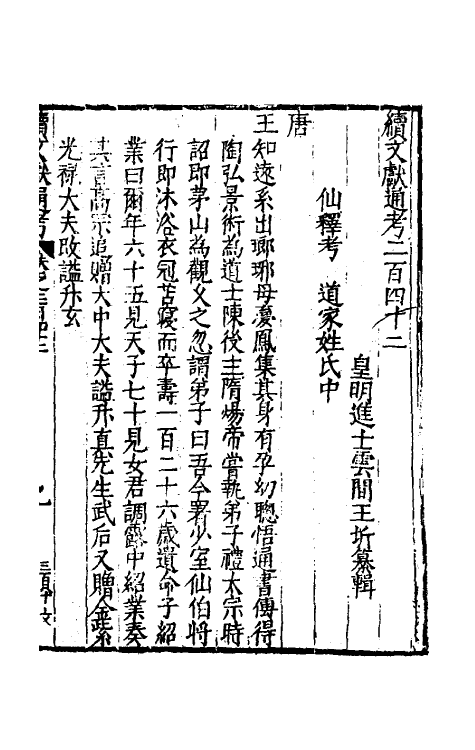 續文獻通考二百四十二
皇明進士雲間王圻纂輯
仙釋考　道家姓氏中
唐
王知遠系出瑯琊母夢鳳集其身有孕幼聰悟通書傳得
陶弘景術為道士陳後主隋煬帝嘗執弟子禮太宗時
詔即茅山為觀义之忽謂弟子曰吾今署少室仙伯將
行即沐浴衣冠若寢而卒壽一百二十六歲遺命子紹
業曰爾年六十五見天子七十見女君調露中紹業奏
其言高宗追贈大中大夫謚升真先生武后又贈金紫
光祿大夫改謚升玄
續文獻通考